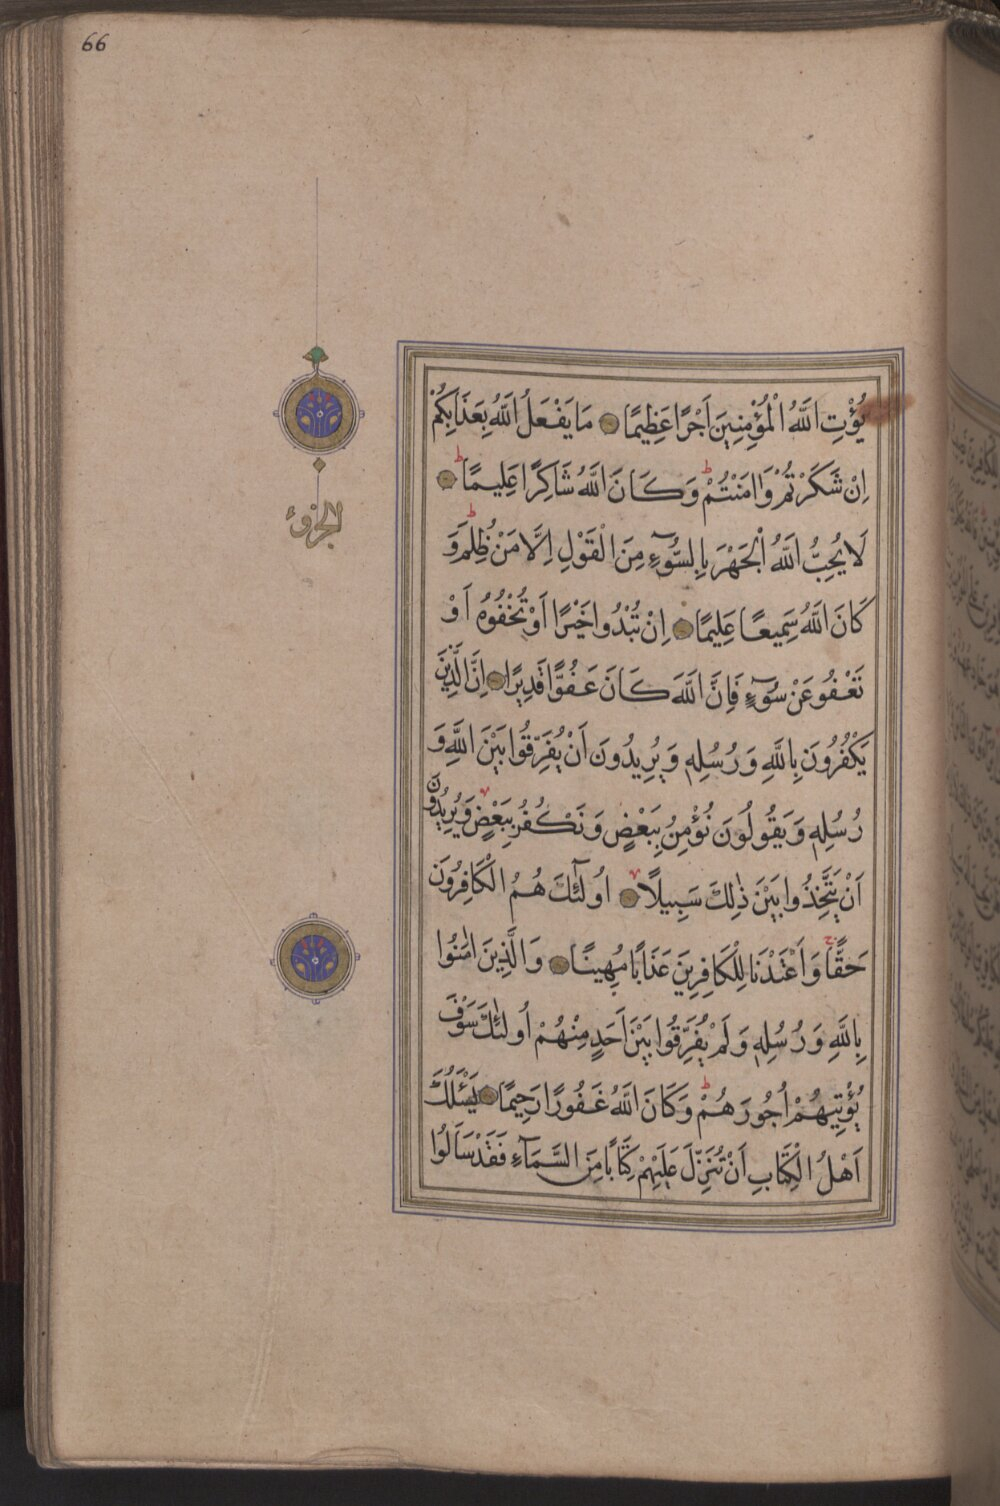 66
يُؤْتِ اللَّهُ الْمُؤْمِنِينَ اَجْرًا عَظِيمًا مَا يَفْعَلُ اللَّهُ بِعَذَابِكُمْ
اِنْ شَكَرْتُمْ وَاٰمَنْتُمْ وَكَانَ اللَّهُ شَاكِرًا عَلِيمًا
لَا يُحِبُّ اللَّهُ الْجَهْرَ بِالسُّوٓءِ مِنَ الْقَوْلِ اِلَّا مَنْ ظُلِمَ وَ
كَانَ اللَّهُ سَمِيعًا عَلِيمًا اِنْ تُبْدُوا خَيْرًا اَوْ تُخْفُوهُ اَوْ
تَعْفُو عَنْ سُوٓءٍ فَاِنَّ اللَّهَ كَانَ عَفُوًّا قَدِيرًا اِنَّ الَّذِينَ
يَكْفُرُونَ بِاللَّهِ وَرُسُلِهٖ وَيُرِيدُونَ اَنْ يُفَرِّقُوا بَيْنَ اللَّهِ وَ
رُسُلِهٖ وَيَقُولُونَ نُؤْمِنُ بِبَعْضٍ وَنَكْفُرُ بِبَعْضٍ وَيُرِيدُونَ
اَنْ يَتَّخِذُوا بَيْنَ ذٰلِكَ سَبِيلًا اُولٰٓئِكَ هُمُ الْكَافِرُونَ
حَقًّا وَاَعْتَدْنَا لِلْكَافِرِينَ عَذَابًا مُهِينًا وَالَّذِينَ اٰمَنُوا
بِاللَّهِ وَرُسُلِهٖ وَلَمْ يُفَرِّقُوا بَيْنَ اَحَدٍ مِنْهُمْ اُولٰٓئِكَ سَوْفَ
يُؤْتِيهِمْ اُجُورَهُمْ وَكَانَ اللَّهُ غَفُورًا رَحِيمًا يَسْـَٔلُكَ
اَهْلُ الْكِتَابِ اَنْ تُنَزِّلَ عَلَيْهِمْ كِتَابًا مِنَ السَّمَآءِ فَقَدْ سَاَلُوا